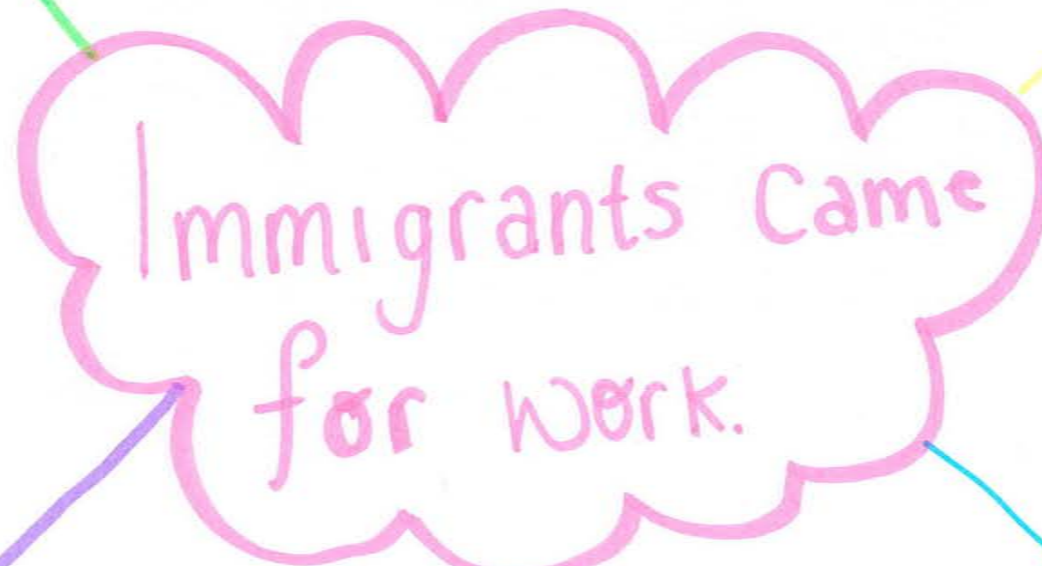 Immigrants came
for work.